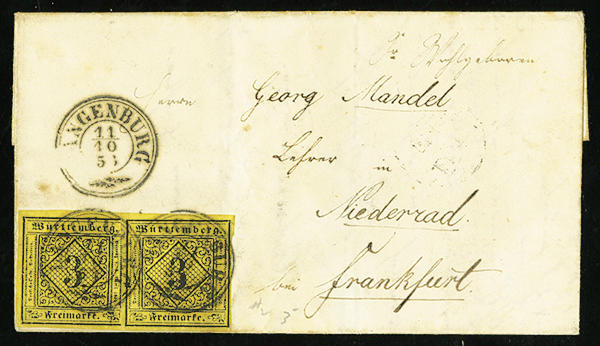 Sr Wohlgeboren
Herrn Georg Mandel
Lehrer in
Niederrad.
bei Frankfurt.
LANGENBURG
11
10
53
Württemberg.
3
Freimarke.
Württemberg.
3
Freimarke.